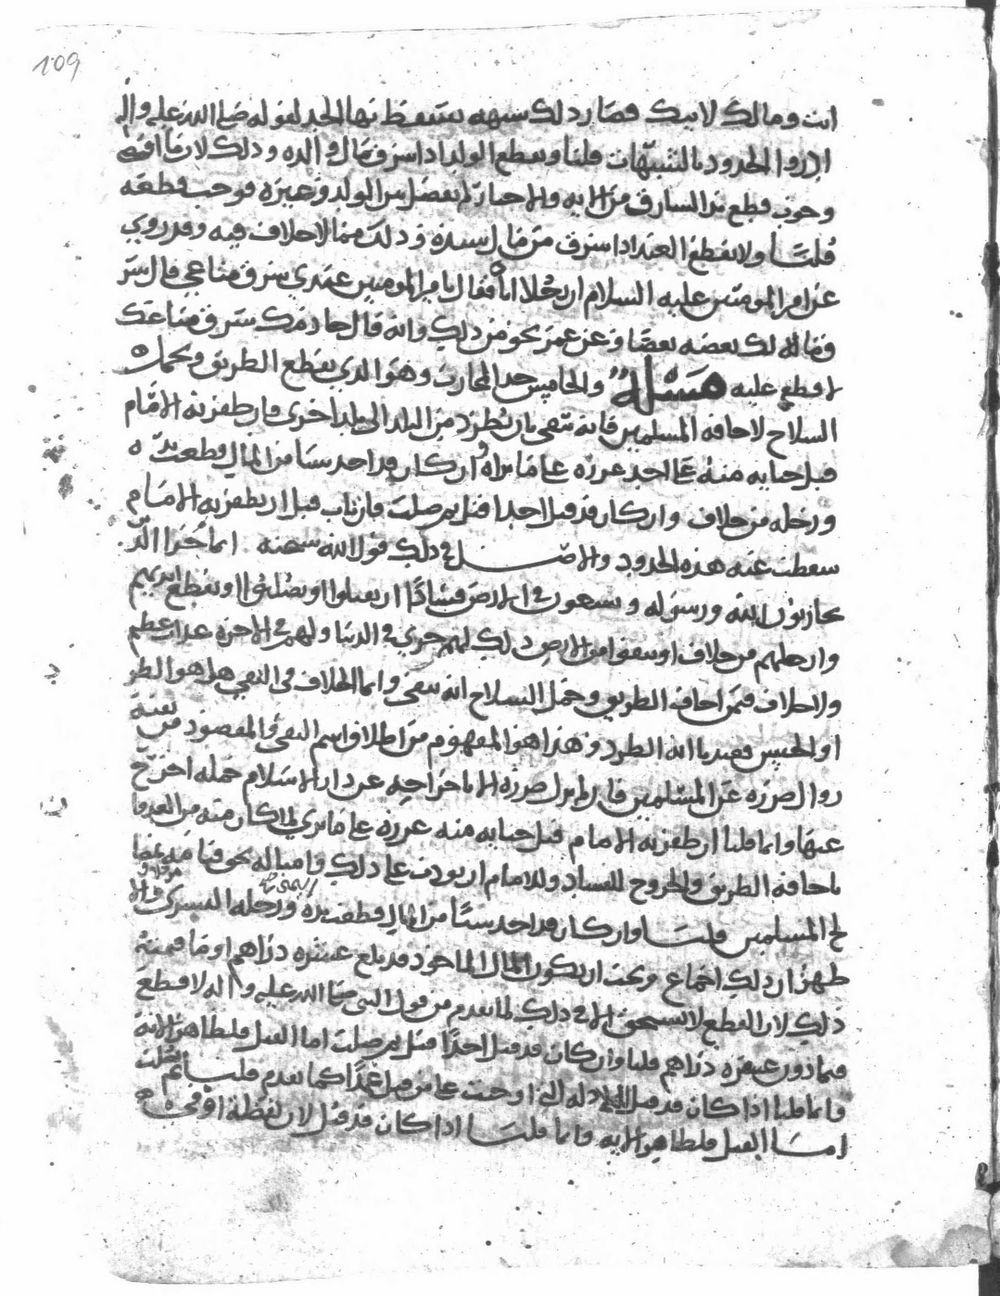 109
انت ومالك لابيك فصار ذلك شبهه يسقط بها الحد لقوله صلى الله عليه واله
ادروا الحدود بالشبهات قلنا ويقطع الولد اذا سرق مال والده وذلك لان ما اقتضى
وجوب قطع يد السارق من الايه والاخبار لم يفصل بين الولد وغيره فوجب قطعه
قلنا ولا يقطع العبد اذا سرق من مال سيده وذلك مما لا خلاف فيه وقد روي
عن امير المومنين عليه السلام ان رجلا اتاه فقال يا امير المومنين عبدي سرق متاعي قال سرق
فقال مالك بعضه بعضا وعن عمر نحو من ذلك وانه قال خادمك سرق متاعك
لا قطع عليه مسئلة والخامس حد المحارب وهو الذي يقطع الطريق ويحمل
السلاح لاخافه المسلمين فانه ينفى بان يطرد من البلد الى بلد اخرى فان ظفر به الامام
قبل جنايه منه على احد عزره على ما يراه وان كان قد اخذ شيا من المال قطعت يده
ورجله من خلاف وان كان قد قتل احدا قتل ثم صلب فان تاب قبل ان يظفر به الامام
سقطت عنه هذه الحدود والاصل في ذلك قول الله سبحنه انما جزا الذين
يحاربون الله ورسوله ويسعون في الارض فسادا ان يقتلوا او يصلبوا او تقطع ايديهم
وارجلهم من خلاف او ينفوا من الارض ذلك لهم خزي في الدنيا ولهم في الاخره عذاب عظيم
ولا خلاف فيمن اخاف الطريق وحمل السلاح انه ينفى وانما الخلاف في النفي هل هو الطرد
او الحبس فعندنا انه الطرد وهذا هو المفهوم من اطلاق اسم النفي والمقصود من نفيه
زوال ضرره عن المسلمين فان لم يزل ضرره الا باخراجه عن دار الاسلام جمله اخرج
عنها وانما قلنا ان ظفر به الامام قبل جنايه منه عزره على ما يرى لما كان منه من
باخافه الطريق والخروج للفساد وللامام ان يودب على ذلك وامثاله نحو
المسلمين قلنا وان كان قد اخذ شيئا من المال قطعت يده اليمنى ورجله اليسرى
ان ذلك اجماع ويجب ان يكون المال الماخوذ قد بلغ عشره دراهم او ما قيمته
ذلك لان القطع لا يستحق الا في ذلك لما تقدم من قول النبي صلى الله عليه واله لا قطع
فيما دون عشره دراهم قلنا وان كان قد قتل احدا قتل ثم صلب اما القتل فلظاهر الايه
وانما قلنا اذا كان قد قتل للادله التي اوجبت على من قتل عمدا كما تقدم قلنا ثم صلب
اما القتل فلظاهر الايه وانما قلنا اذا كان قد قتل لان لفظه او في